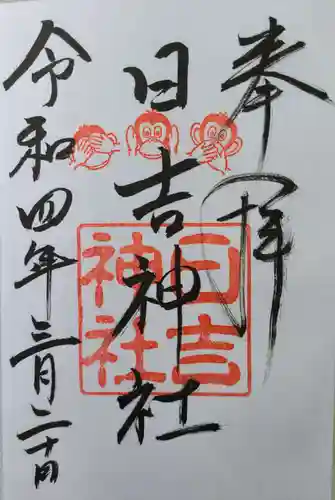 奉拝
日吉神社
日吉
神社
令和四年三月二十日